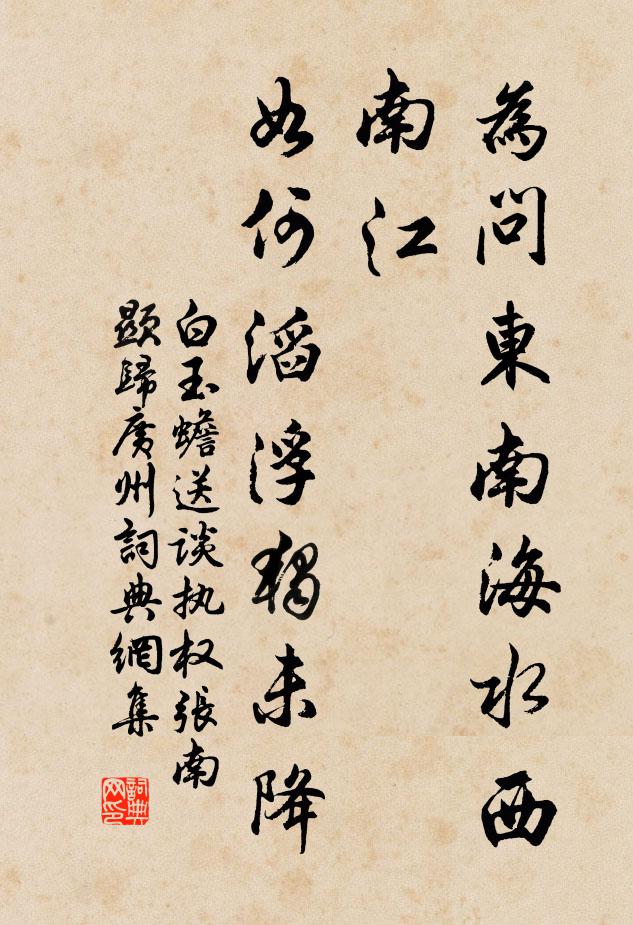 為問東南海水西
南江
如何滔浮獨未降
白玉蟾送談执权張南
顯歸廣州詞典網集
詞典
网印